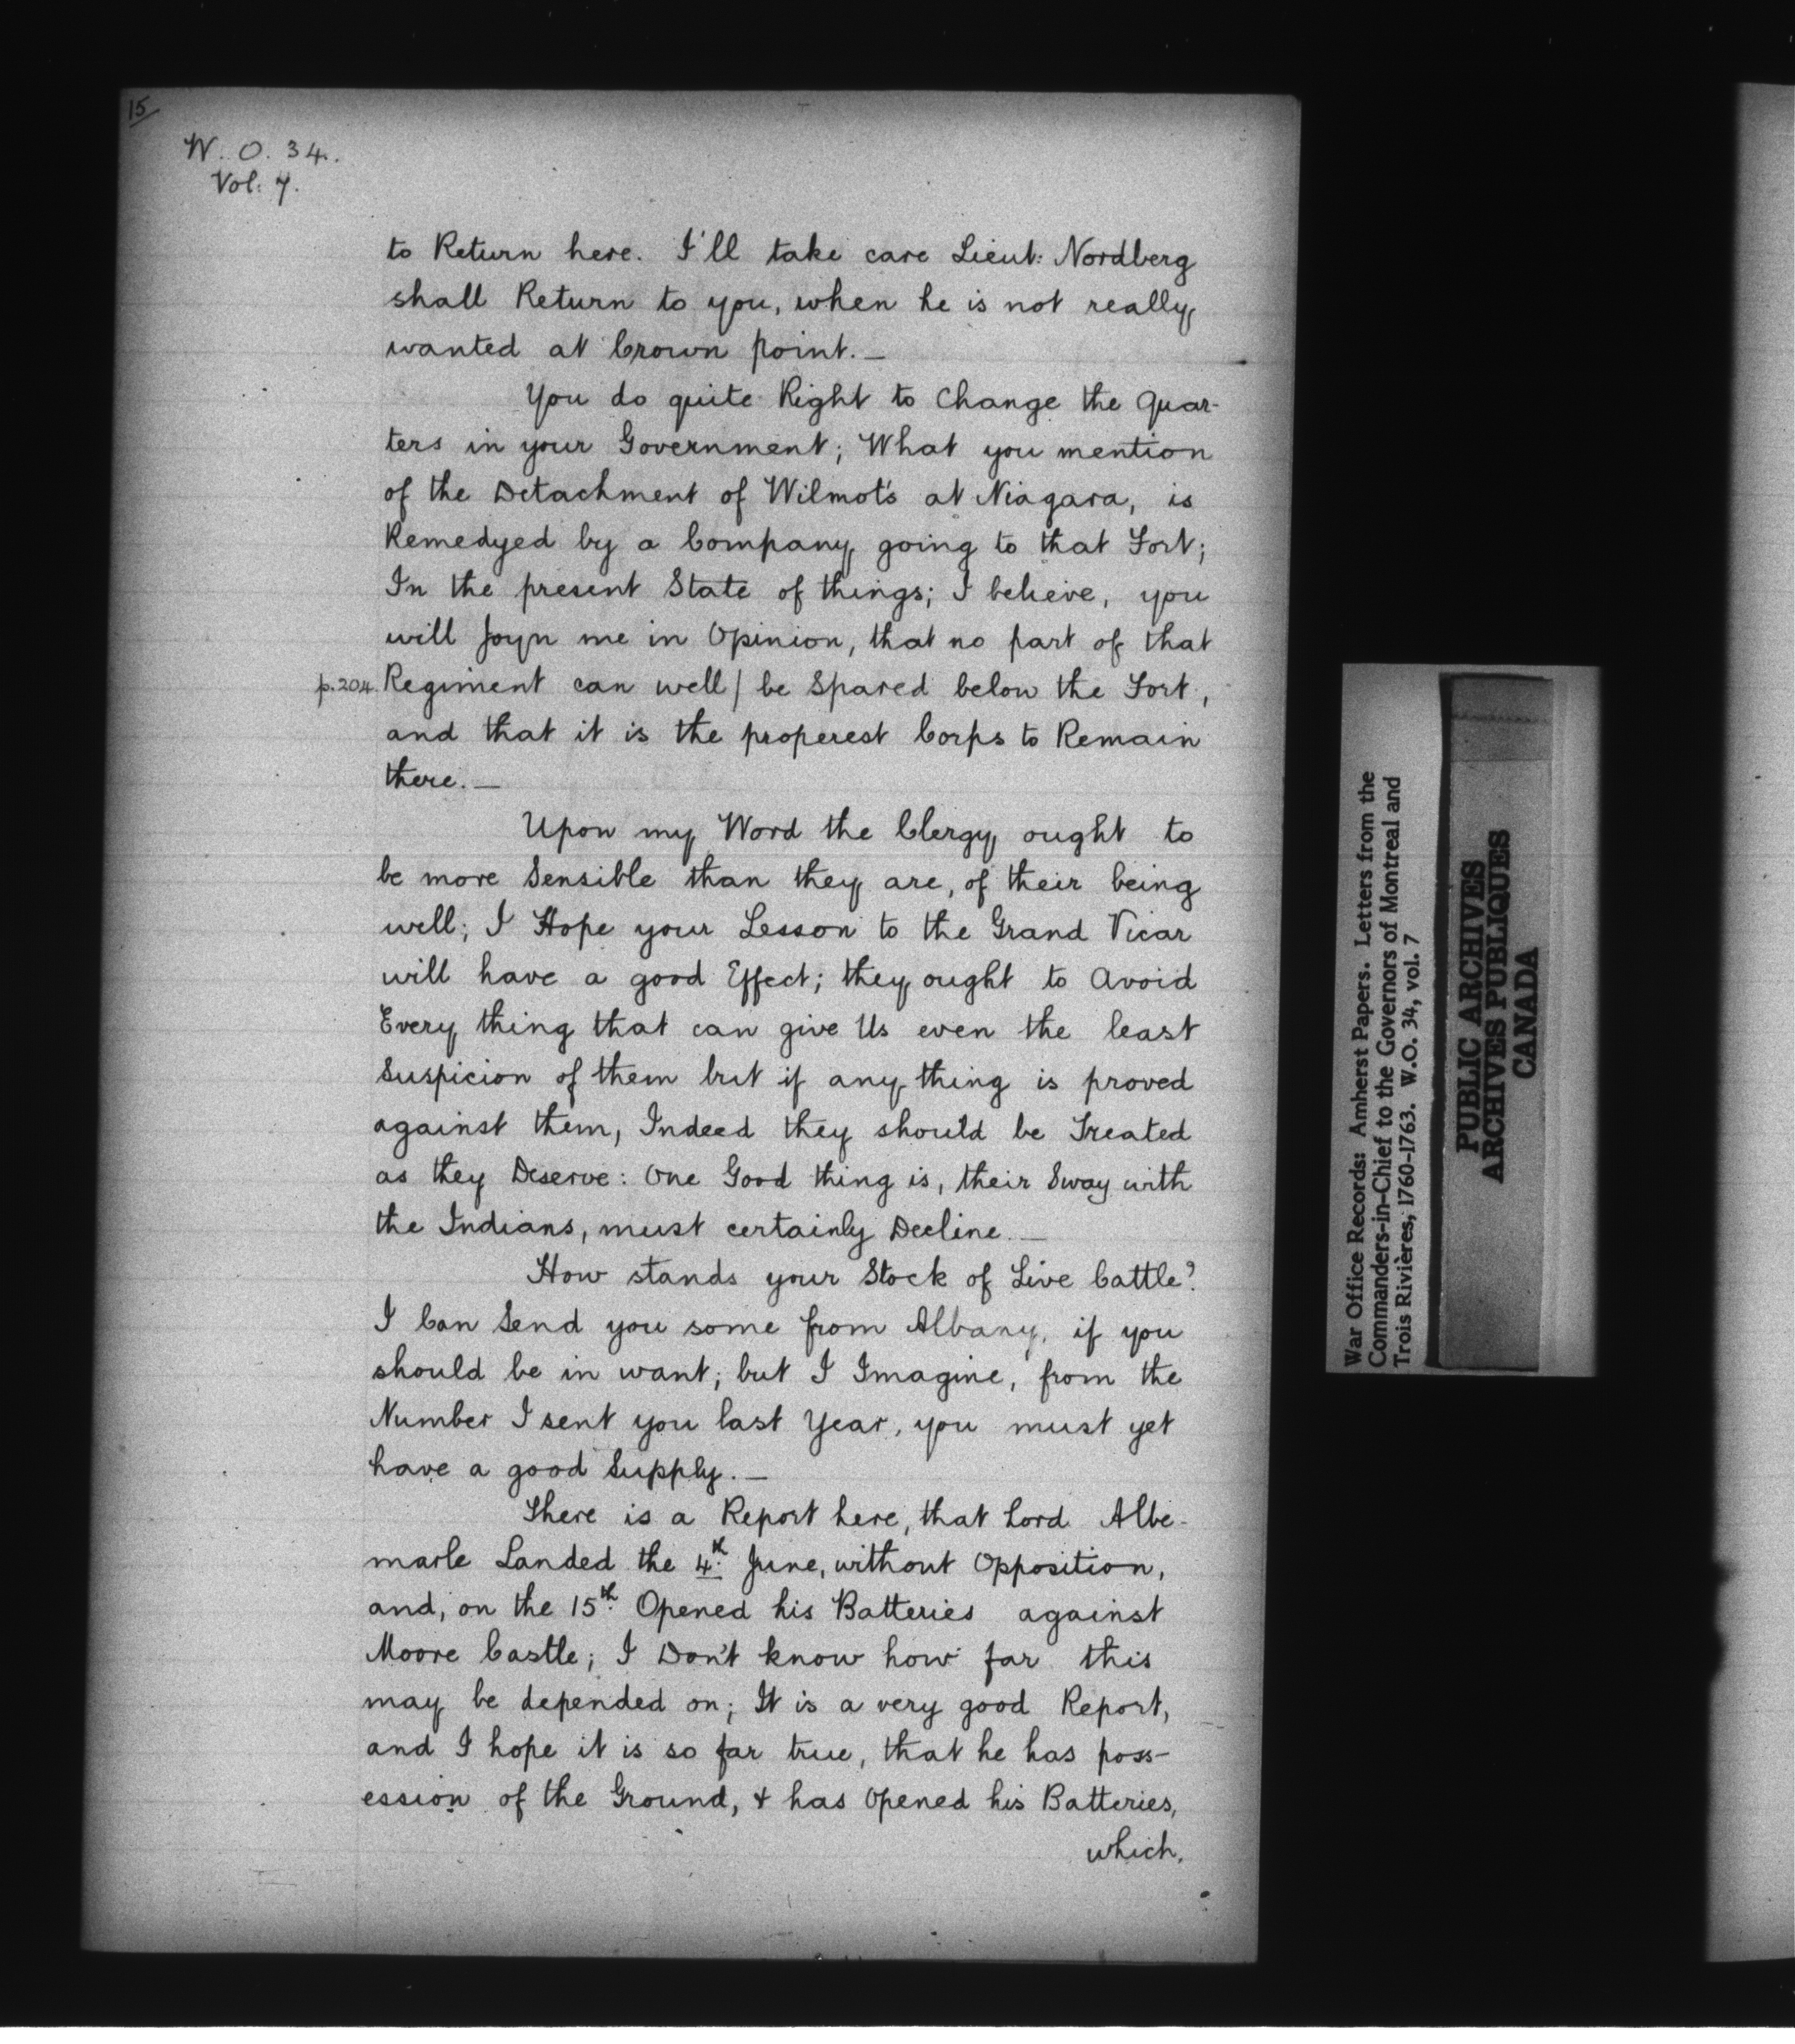 15
W. O. 34.
Vol: 7.
to Return here. I'll take care Lieut: Nordberg
shall Return to you, when he is not really
wanted at Crown point. —
You do quite Right to Change the Quar-
ters in your Government; What you mention
of the Detachment of Wilmot's at Niagara, is
Remedyed by a Company going to that Fort;
In the present State of things; I believe, you
will Joyn me in Opinion, that no part of that
p.204. Regiment can well / be Spared below the Fort,
and that it is the properest Corps to Remain
there. —
Upon my Word the Clergy ought to
be more Sensible than they are, of their being
well; I Hope your Lesson to the Grand Vicar
will have a good Effect; they ought to Avoid
Every thing that can give Us even the least
Suspicion of them but if any thing is proved
against them, Indeed they should be Treated
as they Deserve: One Good thing is, their Sway with
the Indians, must certainly Decline. —
How stands your Stock of Live Cattle?
I Can Send you some from Albany, if you
should be in want; but I Imagine, from the
Number I sent you last Year, you must yet
have a good Supply. —
There is a Report here, that Lord Albe-
marle Landed the 4th June, without Opposition,
and, on the 15th Opened his Batteries against
Moore Castle; I Don't know how far this
may be depended on; It is a very good Report,
and I hope it is so far true, that he has poss-
ession of the Ground, & has Opened his Batteries,
which.
War Office Records: Amherst Papers. Letters from the
Commanders-in-Chief to the Governors of Montreal and
Trois Rivières, 1760-1763. W.O. 34, vol. 7
PUBLIC ARCHIVES
ARCHIVES PUBLIQUES
CANADA